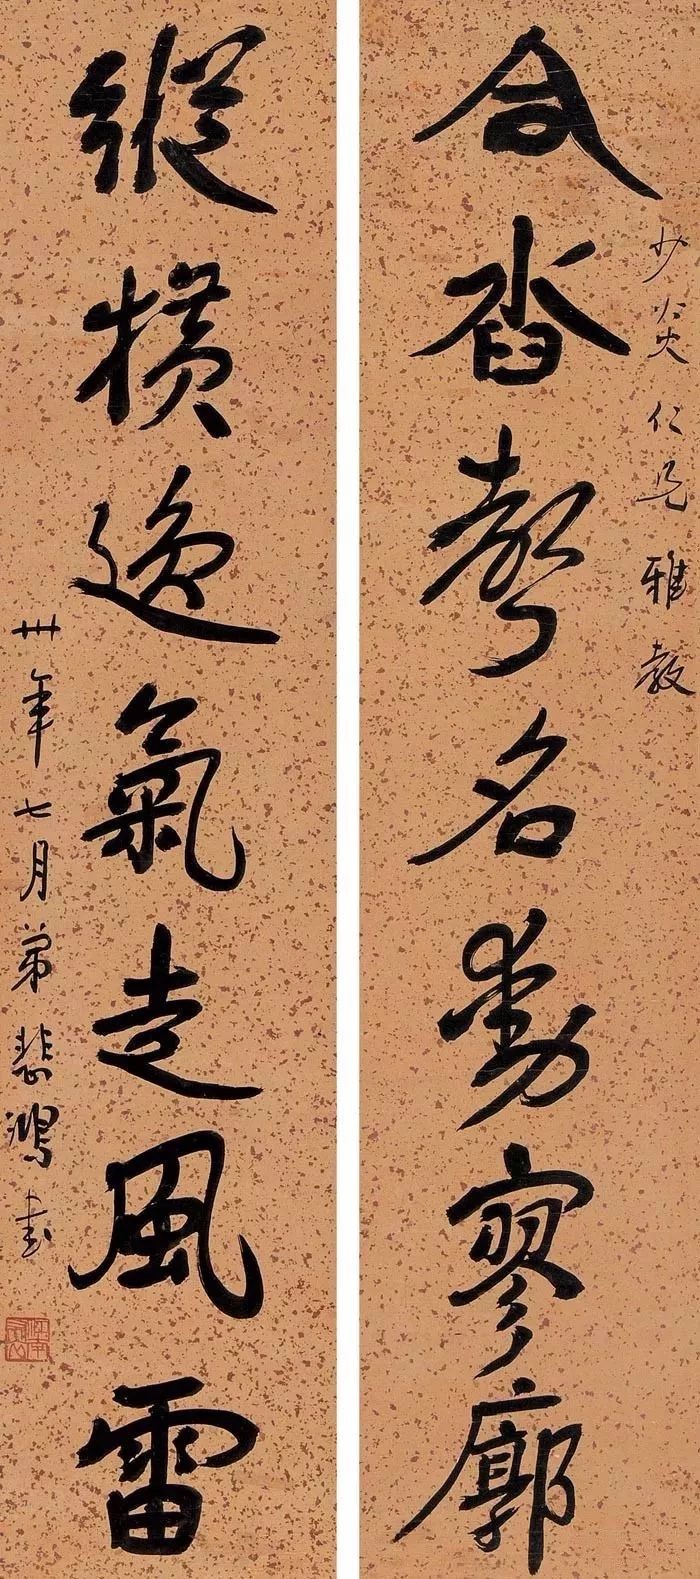 少炎仁兄雅教
合沓聲名動寥廓
縱橫逸氣走風雷
卅年七月弟悲鴻書